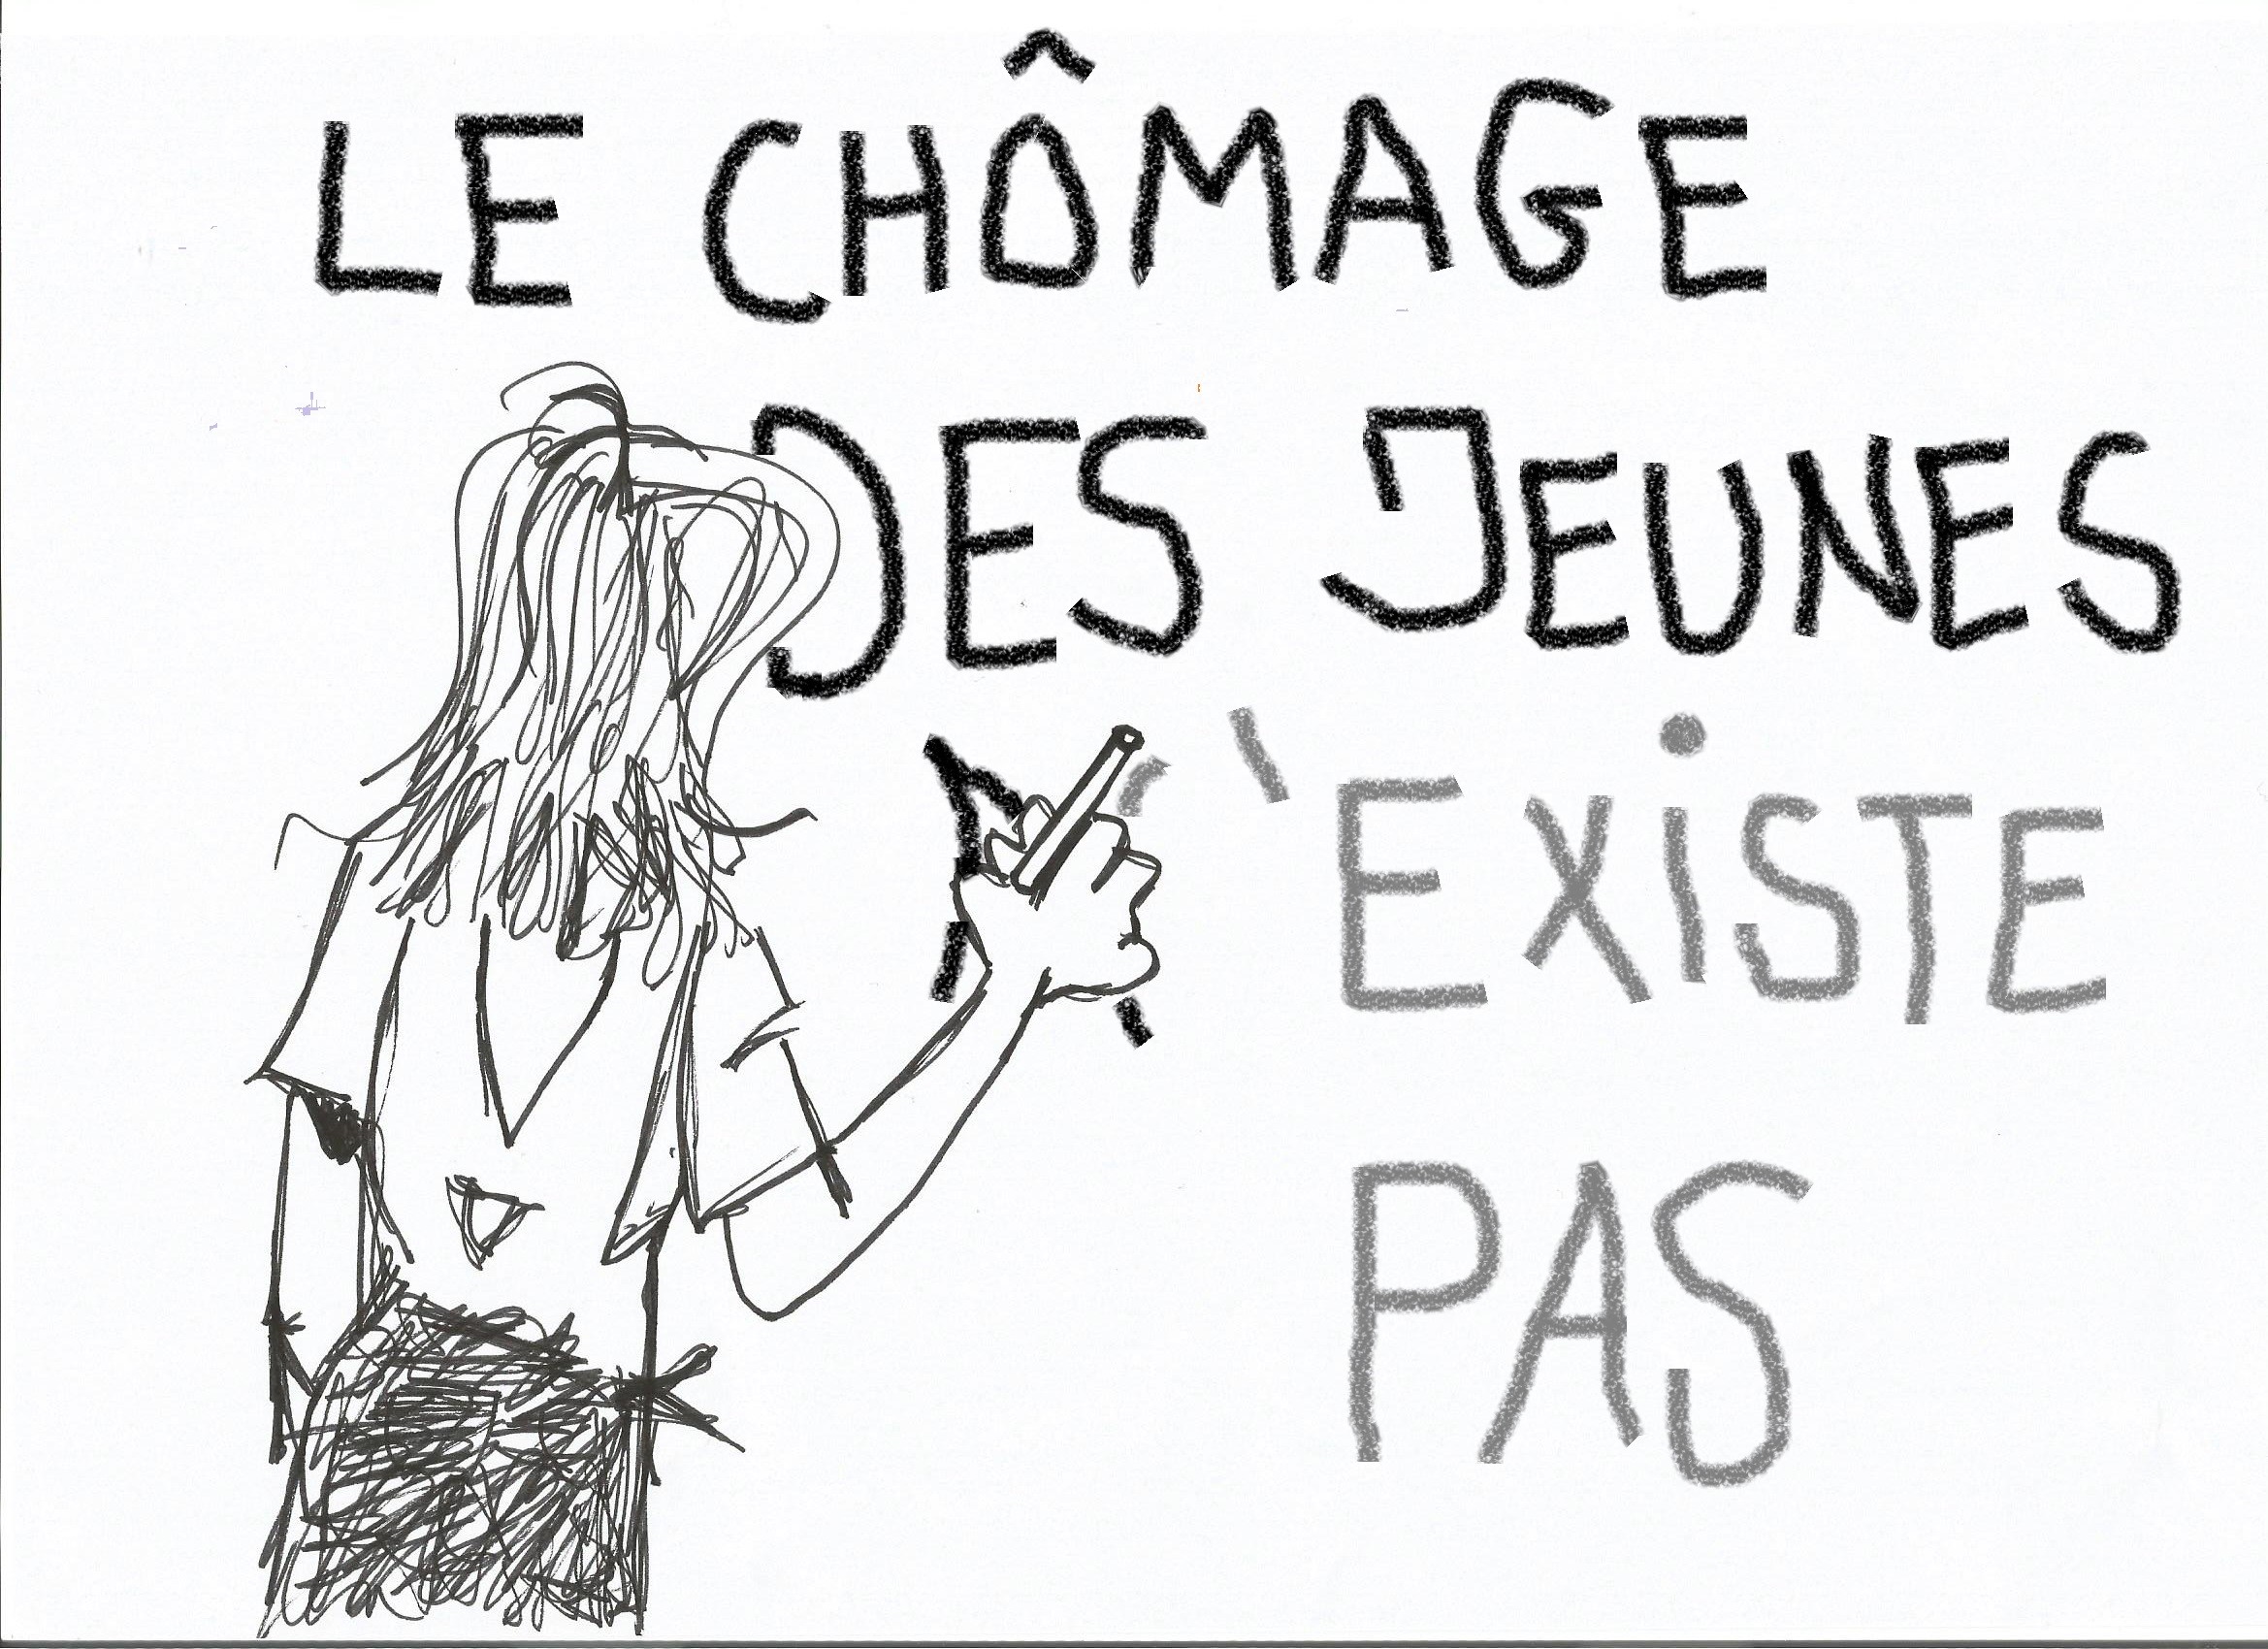 LE CHÔMAGE
DES JEUNES
N'EXiSTE
PAS